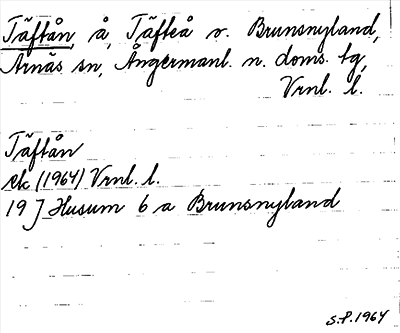 Täftån, å, Täfteå o. Brunsnyland,
Arnäs sn, Ångermanl. n. doms. tg,
Vrnl. l.
Täftån
ek (1964) Vrnl. l.
19 J Husum 6 a Brunsnyland
S.P. 1964